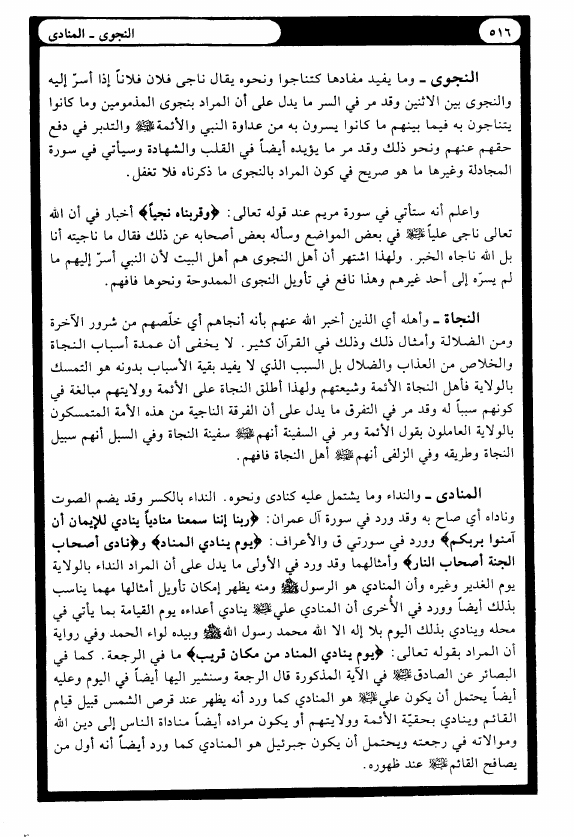 ٥١٦
النجوى ـ المنادى
النجوى ـ وما يفيد مفادها كتناجوا ونحوه يقال ناجى فلان فلاناً إذا أسرّ إليه
والنجوى بين الاثنين وقد مر في السر ما يدل على أن المراد بنجوى المذمومين وما كانوا
يتناجون به فيما بينهم ما كانوا يسرون به من عداوة النبي والأئمة عليهم السلام والتدبر في دفع
حقهم عنهم ونحو ذلك وقد مر ما يؤيده أيضاً في القلب والشهادة وسيأتي في سورة
المجادلة وغيرها ما هو صريح في كون المراد بالنجوى ما ذكرناه فلا تغفل.
واعلم أنه ستأتي في سورة مريم عند قوله تعالى: ﴿وقربناه نجياً﴾ أخبار في أن الله
تعالى ناجى علياً عليه السلام في بعض المواضع وسأله بعض أصحابه عن ذلك فقال ما ناجيته أنا
بل الله ناجاه الخبر. ولهذا اشتهر أن أهل النجوى هم أهل البيت لأن النبي أسرّ إليهم ما
لم يسرّه إلى أحد غيرهم وهذا نافع في تأويل النجوى الممدوحة ونحوها فافهم.
النجاة ـ وأهله أي الذين أخبر الله عنهم بأنه أنجاهم أي خلّصهم من شرور الآخرة
ومن الضلالة وأمثال ذلك وذلك في القرآن كثير. لا يخفى أن عمدة أسباب النجاة
والخلاص من العذاب والضلال بل السبب الذي لا يفيد بقية الأسباب بدونه هو التمسك
بالولاية فأهل النجاة الأئمة وشيعتهم ولهذا أطلق النجاة على الأئمة وولايتهم مبالغة في
كونهم سبباً له وقد مر في التفرق ما يدل على أن الفرقة الناجية من هذه الأمة المتمسكون
بالولاية العاملون بقول الأئمة ومر في السفينة أنهم عليهم السلام سفينة النجاة وفي السبل أنهم سبيل
النجاة وطريقه وفي الزلفى أنهم عليهم السلام أهل النجاة فافهم.
المنادى ـ والنداء وما يشتمل عليه كنادى ونحوه. النداء بالكسر وقد يضم الصوت
وناداه أي صاح به وقد ورد في سورة آل عمران: ﴿ربنا إننا سمعنا منادياً ينادي للإيمان أن
آمنوا بربكم﴾ وورد في سورتي ق والأعراف: ﴿يوم ينادي المناد﴾ و﴿نادى أصحاب
الجنة أصحاب النار﴾ وأمثالهما وقد ورد في الأولى ما يدل على أن المراد النداء بالولاية
يوم الغدير وغيره وأن المنادي هو الرسول ﷺ ومنه يظهر إمكان تأويل أمثالها مهما يناسب
بذلك أيضاً وورد في الأُخرى أن المنادي علي عليه السلام ينادي أعداءه يوم القيامة بما يأتي في
محله وينادي بذلك اليوم بلا إله إلا الله محمد رسول الله ﷺ وبيده لواء الحمد وفي رواية
أن المراد بقوله تعالى: ﴿يوم ينادي المناد من مكان قريب﴾ ما في الرجعة. كما في
البصائر عن الصادق عليه السلام في الآية المذكورة قال الرجعة وسنشير اليها أيضاً في اليوم وعليه
أيضاً يحتمل أن يكون علي عليه السلام هو المنادي كما ورد أنه يظهر عند قرص الشمس قبيل قيام
القائم وينادي بحقيّة الأئمة وولايتهم أو يكون مراده أيضاً مناداة الناس إلى دين الله
وموالاته في رجعته ويحتمل أن يكون جبرئيل هو المنادي كما ورد أيضاً أنه أول من
يصافح القائم عليه السلام عند ظهوره.